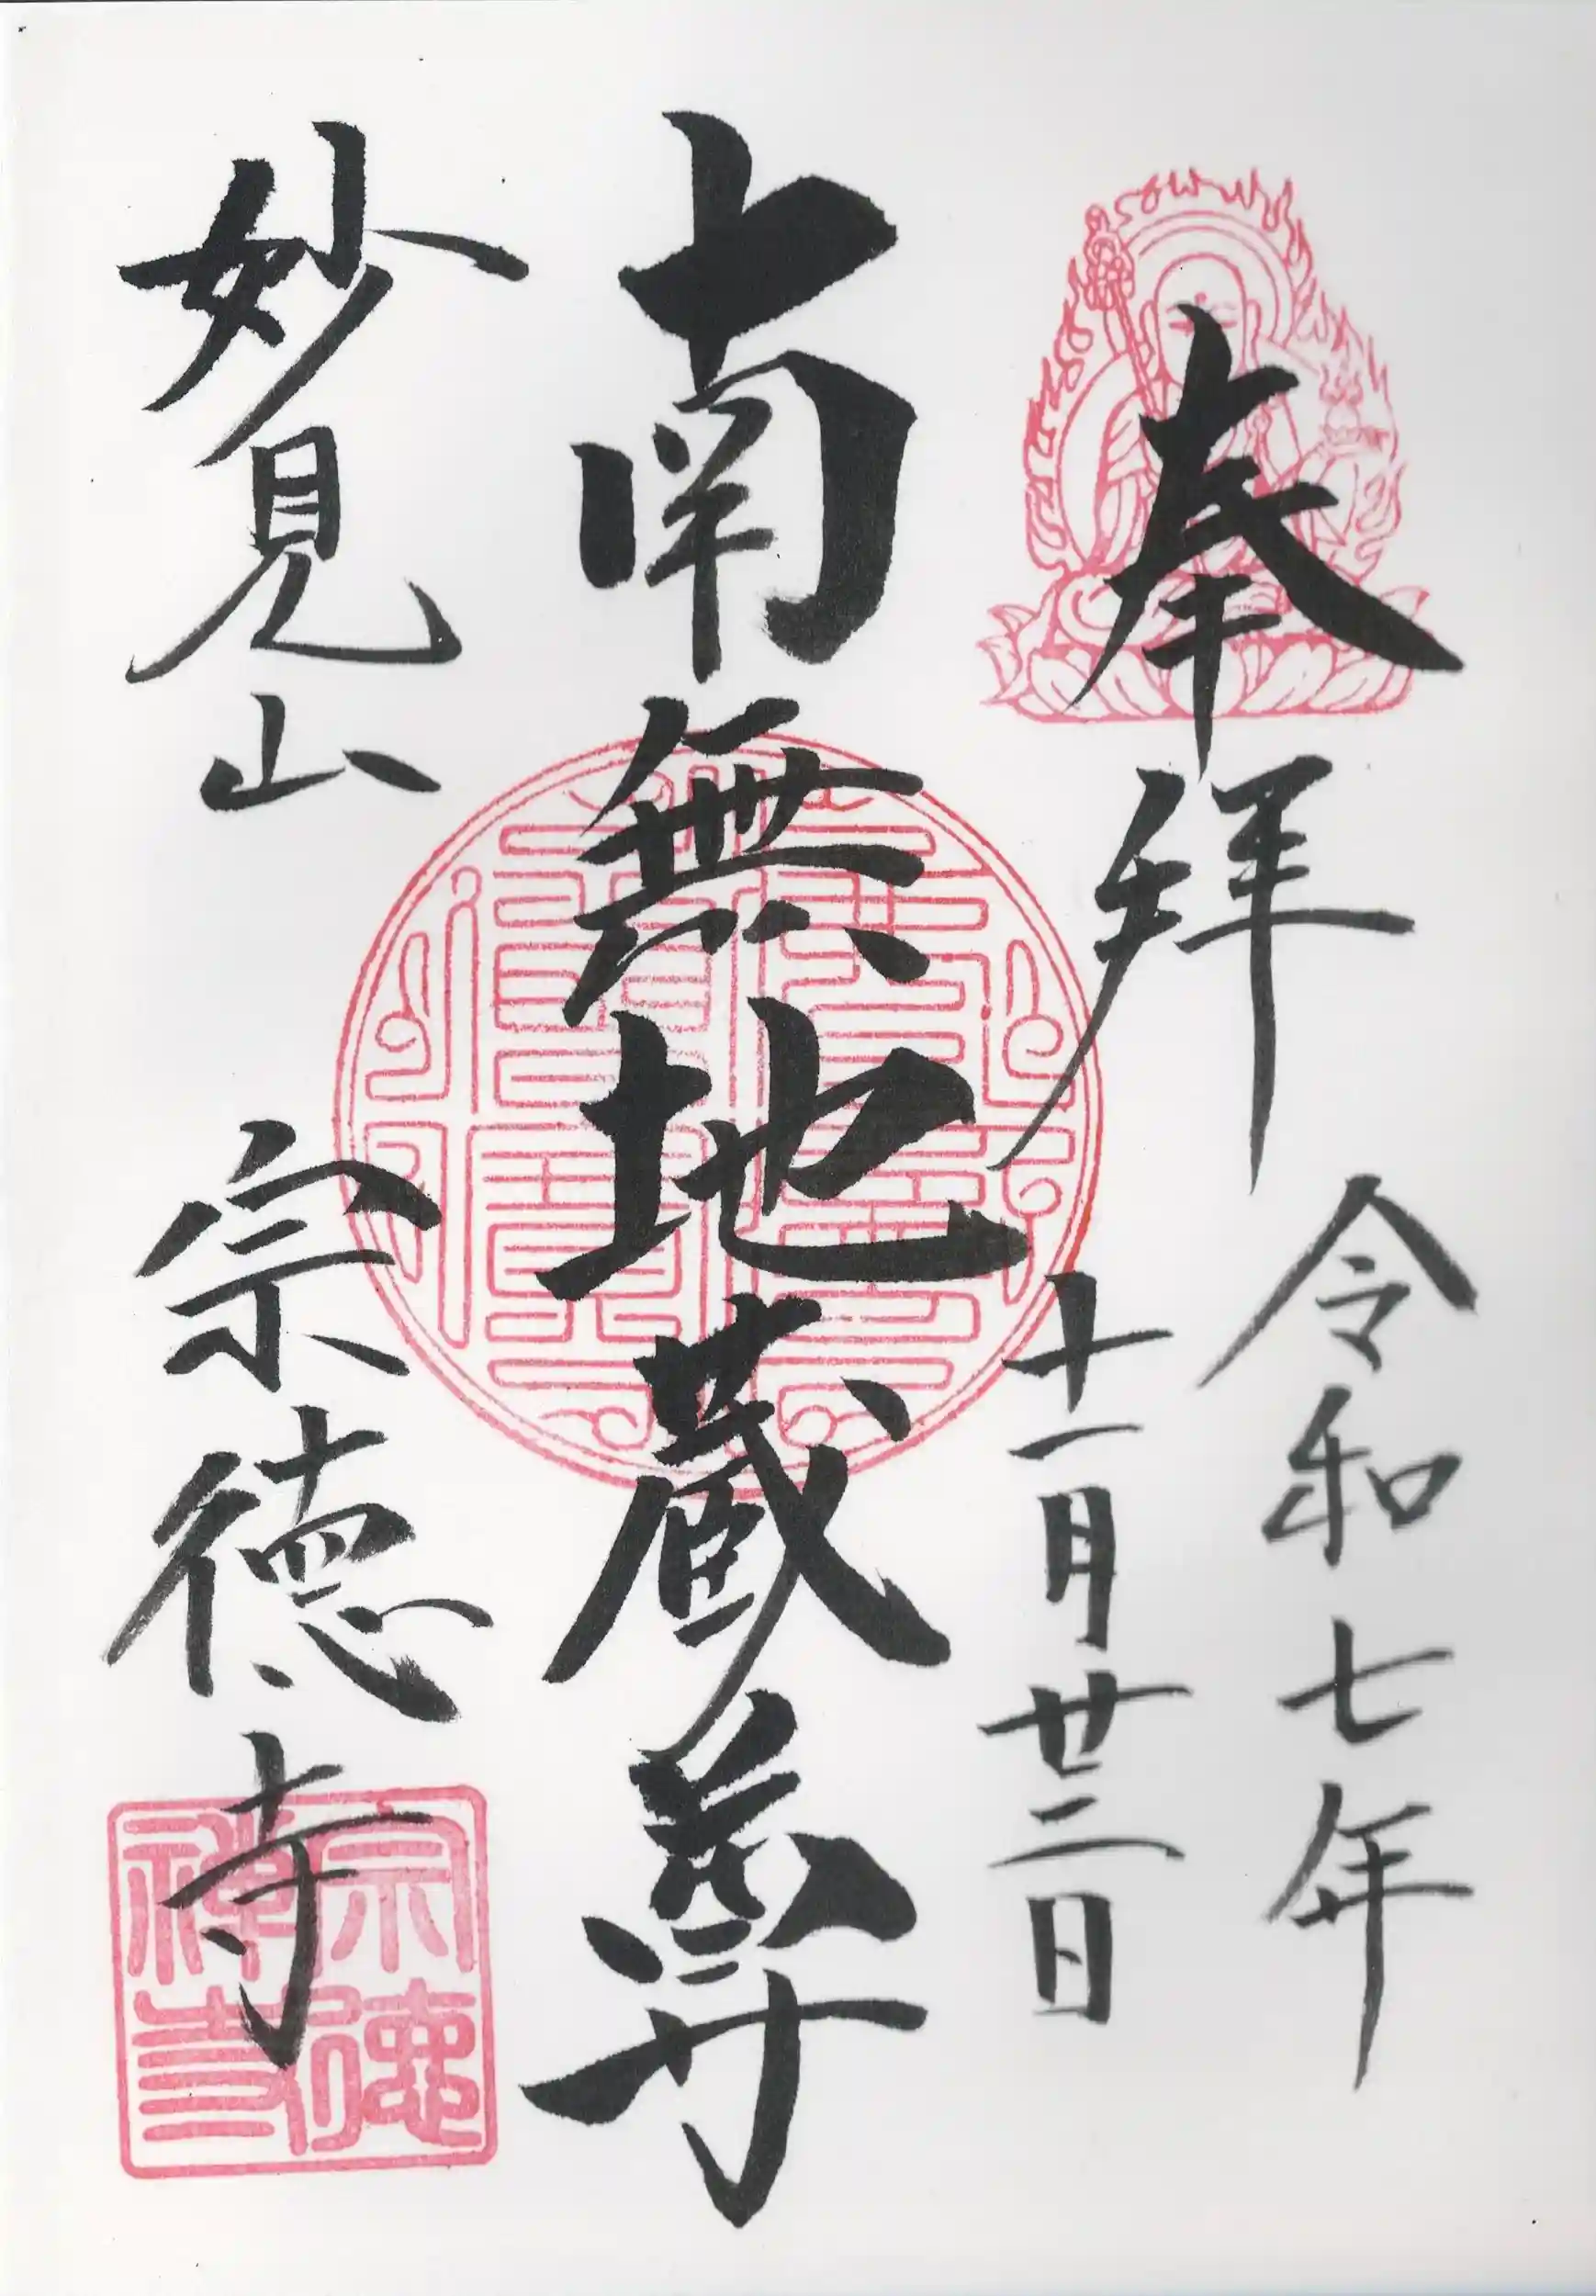 奉拝
令和七年
十一月廿二日
南無地蔵尊
妙見山 宗徳寺
宗徳禅寺